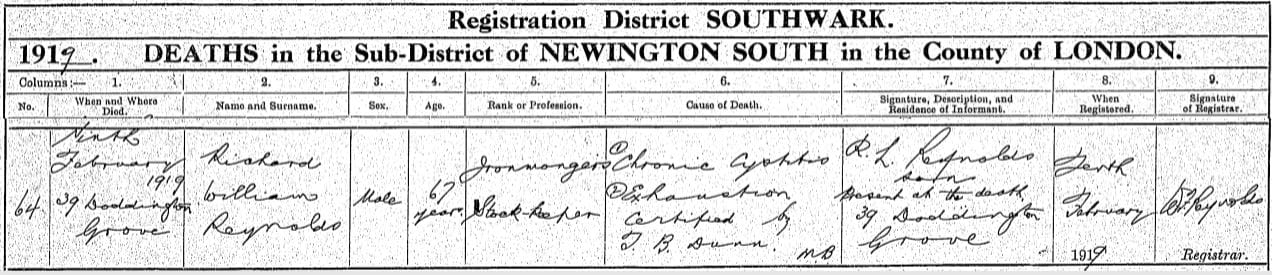 Registration District SOUTHWARK.
1919. DEATHS in the Sub-District of NEWINGTON SOUTH in the County of LONDON.
Columns:— 1. 2. 3. 4. 5. 6. 7. 8. 9.
No. When and Where Died. Name and Surname. Sex. Age. Rank or Profession. Cause of Death. Signature, Description, and Residence of Informant. When Registered. Signature of Registrar.
64.
Ninth
February
1919
39 Doddington
Grove
Richard
William
Reynolds
Male
67
years.
Ironmongers
Stock-keeper
(1) Chronic Cystitis
(2) Exhaustion
Certified by
T. B. Dunn. MB
R. L. Reynolds
son
Present at the death
39 Doddington
Grove
Tenth
February
1919
Reynolds
Registrar.